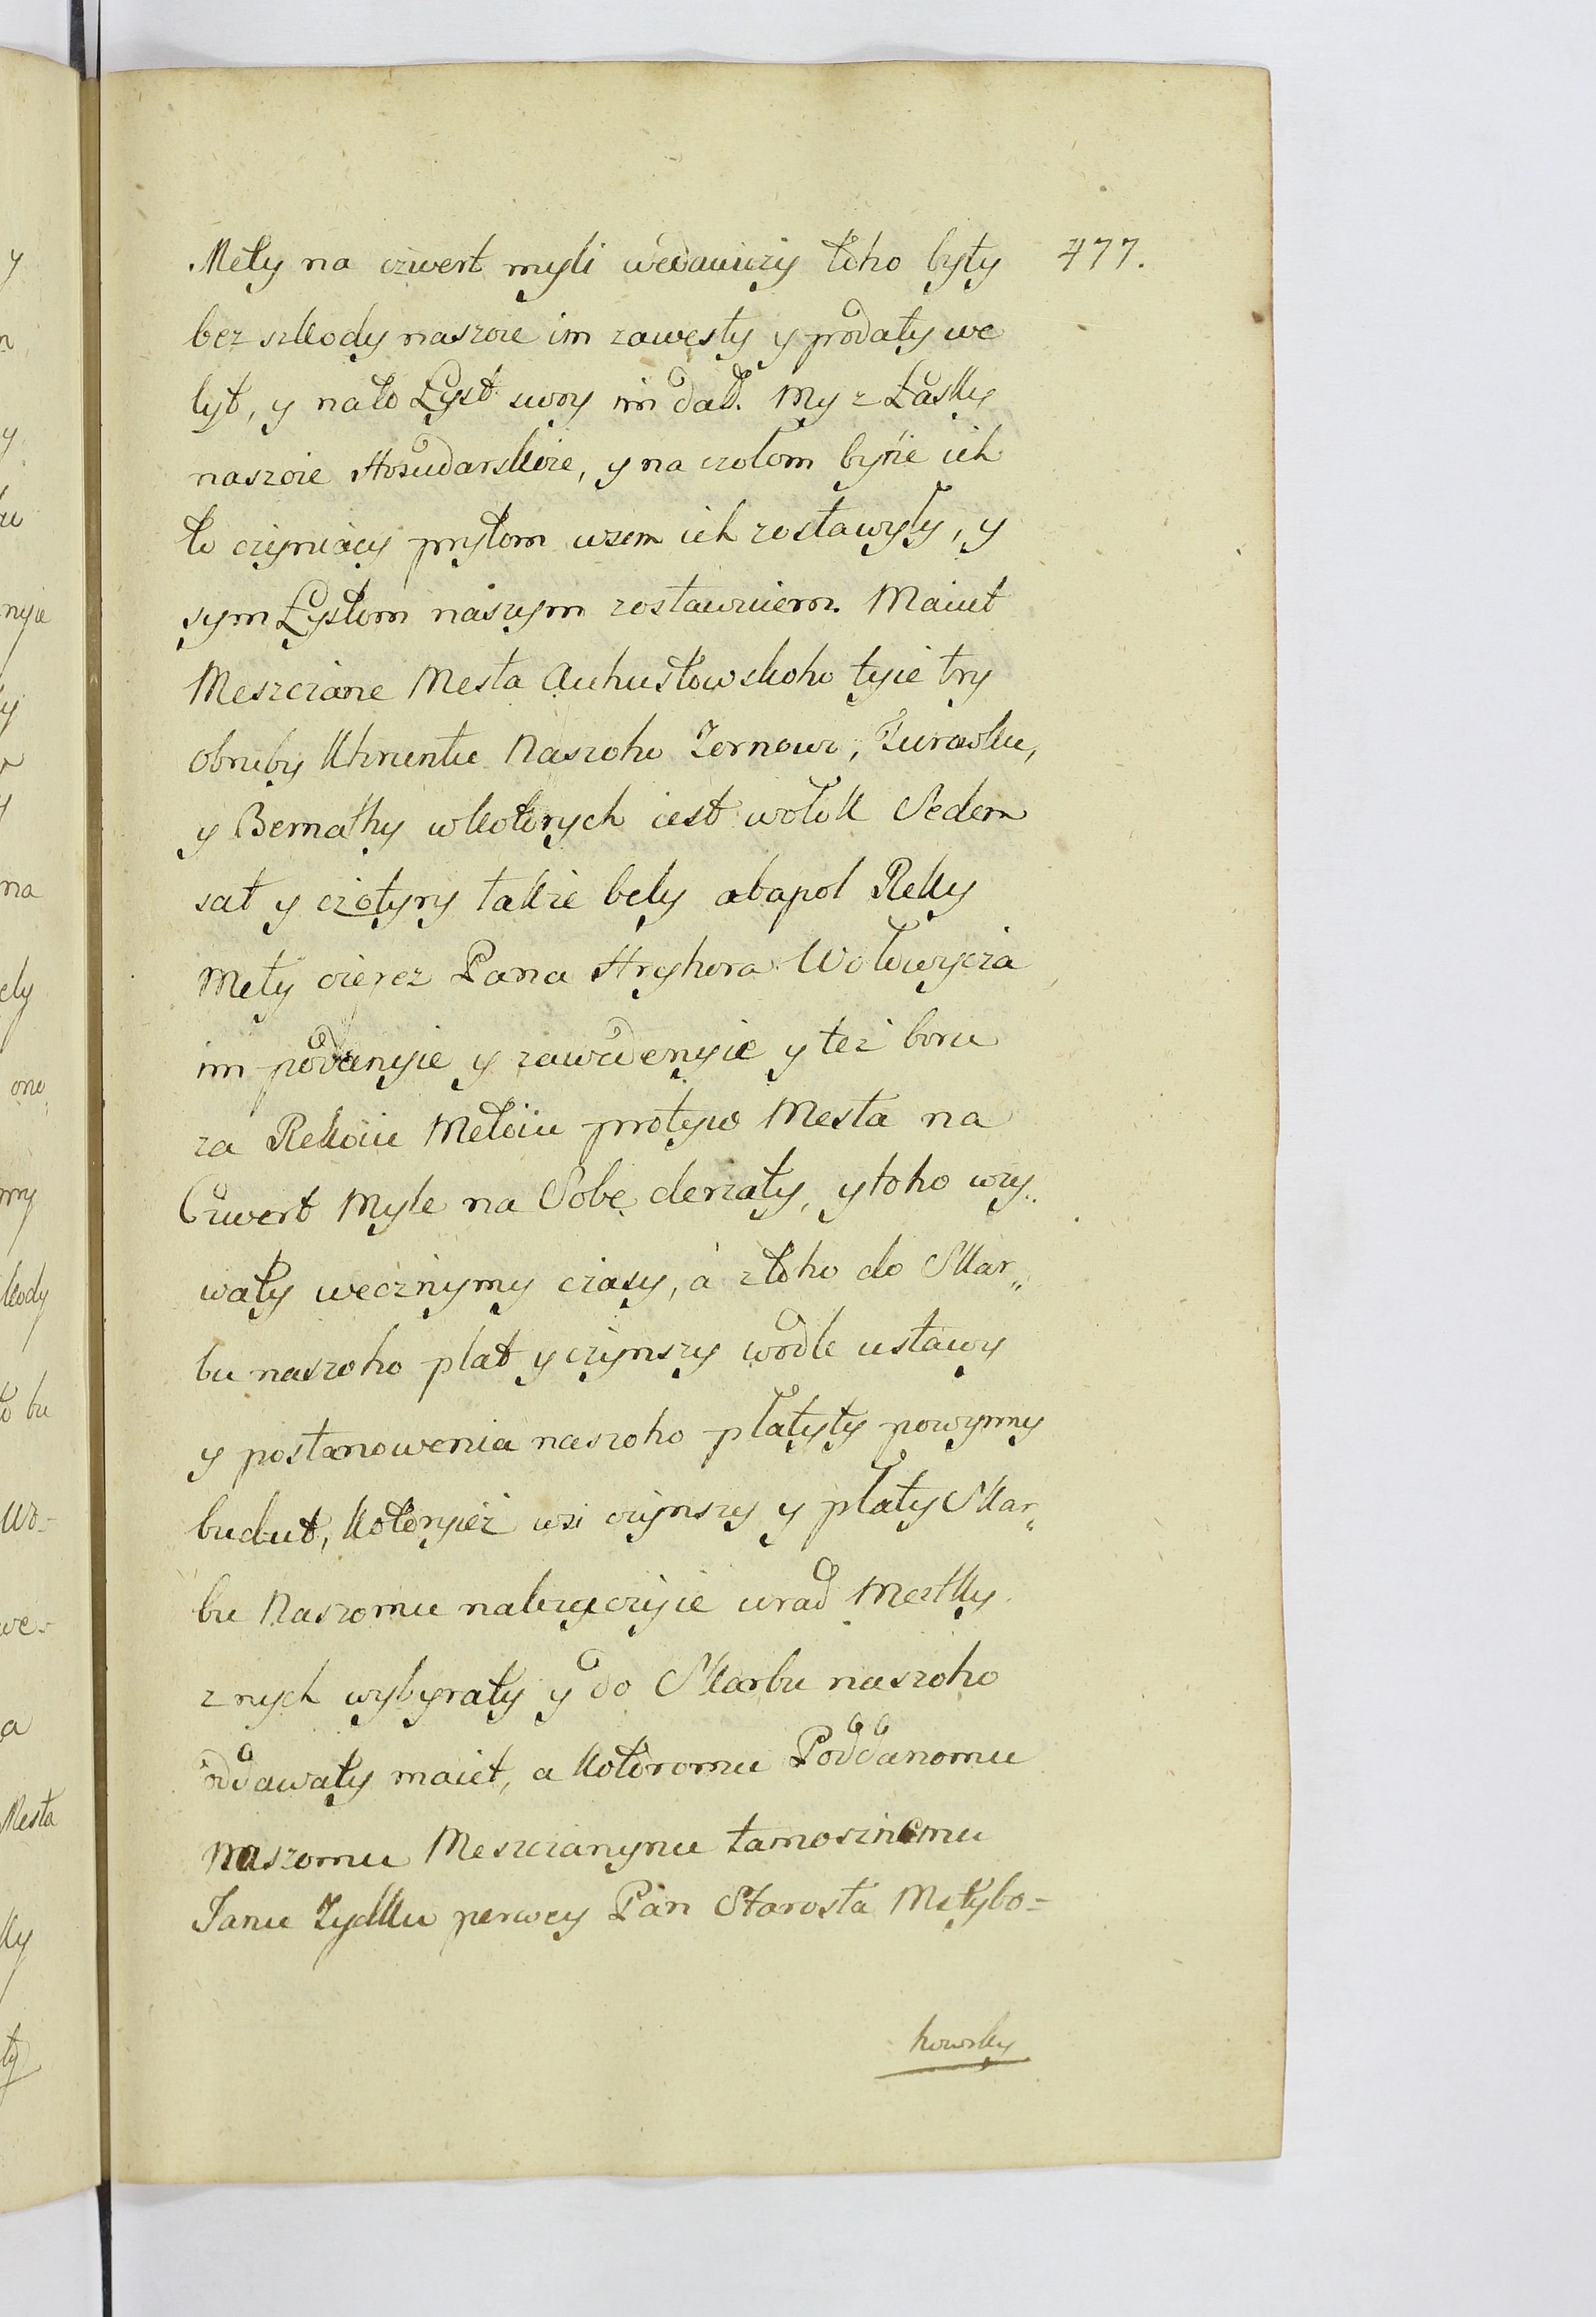 Mety na czwert myli wedauiczy toho byty 477.
bez szkody naszoie im zawesty y prodaty we
lyt, y nato Lyst swoy im dał. My z Łasky
naszoie Hosudarskoie, y na czołom bytie ich
to czyniacy prytom wsem ich zostawyły, y
sym Lystom naszym zostawuiem. Maiut
Meszczane Mesta Auhustowskoho tyie try
obruby Khruntu Naszoho Zernowi, Turowku,
y Bernatky wkotorych iest wołok Sedem
sat y czotyry takze bely abapol Reky
Mety czerez Pana Hryhora Wołowycza
im podanyie y zawedenyie y tez boru
za Rekoiu Metoiu protyw Mesta na
Czwert Myle na Sobe derzaty, y toho uzy„
waty wecznymy czasy, a z toho do Skar„
bu naszoho plat y czynszy wodle ustawy
y postanowenia naszoho płatyty powynny
budut, kotoryież wsi czynszy y płaty Skar„
bu Naszomu nalezaczyie urad Mestky
z nych wybyraty y do Skarbu naszoho
oddawaty maiet, a kotoromu Poddanomu
naszomu Meszczanynu tamosznemu
Janu Zydku perwey Pan Starosta Metybo=
howsky